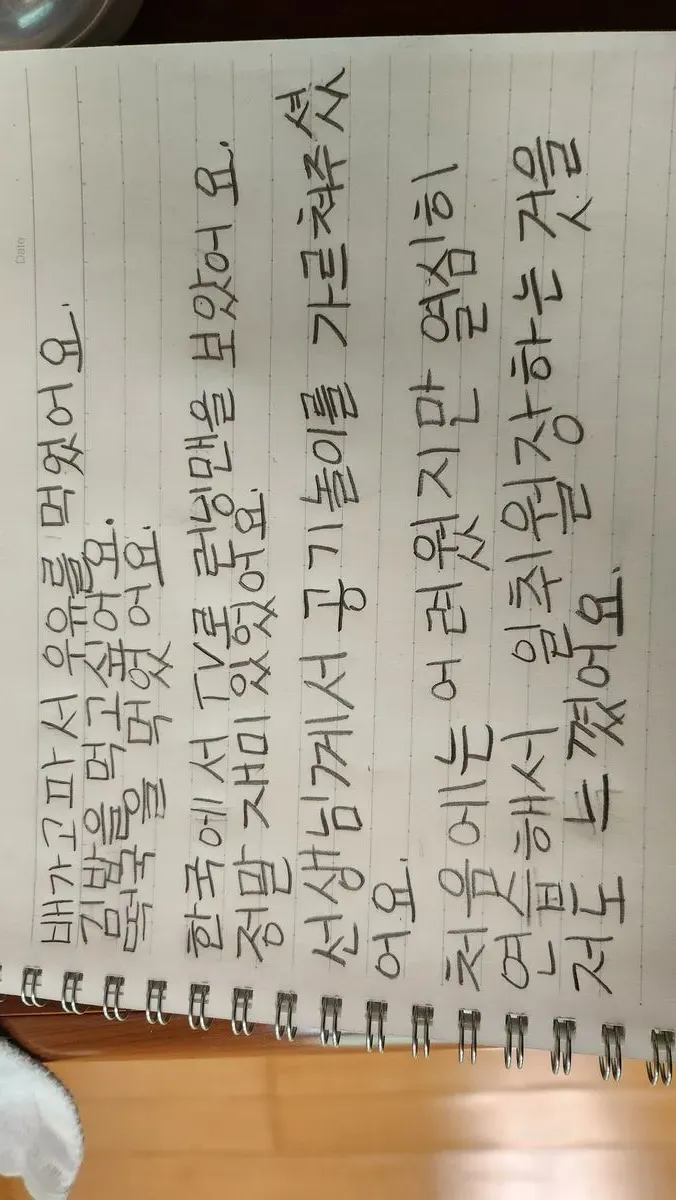 Date
배가고파서 우유를 먹었어요.
김밥을 먹고싶어요.
떡국을 먹었어요.
한국에서 TV로 런닝맨을 보았어요.
정말 재미 있었어요.
선생님께서 공기놀이를 가르쳐주셨
어요.
처음에는 어려웠지만 열심히
연습해서 일취월장하는 것을
저도 느꼈어요.